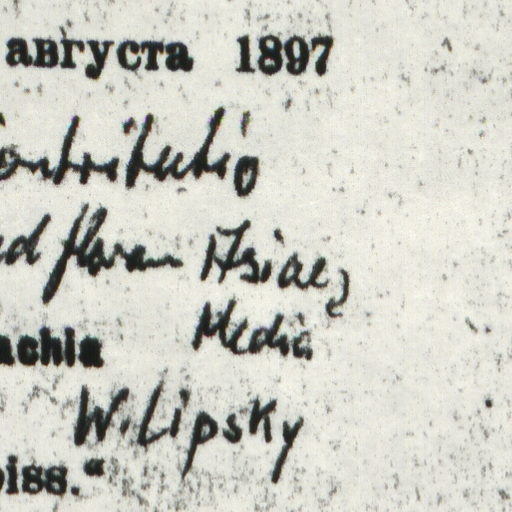 августа 1897
Contributio
ad floram Asiae
Mediae
achia
W. Lipsky
oiss.“